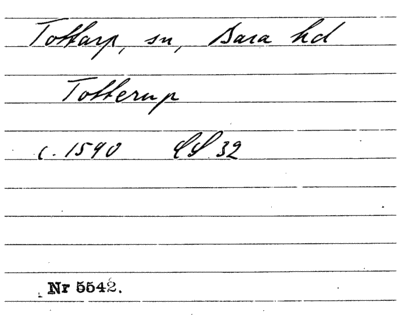 Tottarp, sn, Bara hd
Totterup
c. 1590 LL 32
Nr 5542.